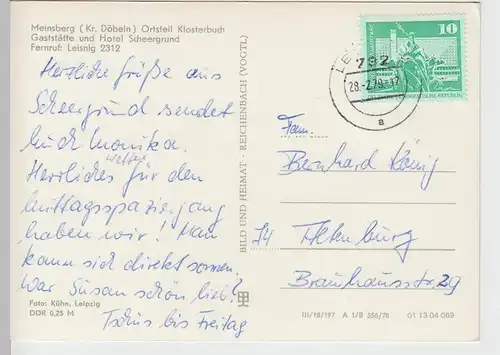 Meinsberg (Kr. Döbeln) Ortsteil Klosterbuch
Gaststätte und Hotel Scheergrund
Fernruf: Leisnig 2312
Herzliche Grüße aus
Scheergrund sendet
Euch Monika.
Herrliches Wetter für den
Mittagsspaziergang
haben wir! Man
kann sich direkt sonnen.
War Susan schön lieb?
Tschüs bis Freitag
Foto: Kühn, Leipzig
DDR 0,25 M
BILD UND HEIMAT · REICHENBACH (VOGTL)
10
732
28.-2.79-17
a
Fam.
Bernhard König
74 Altenburg
Brauhausstr. 29
III/18/197 A 1/B 356/78 01 13 04 069